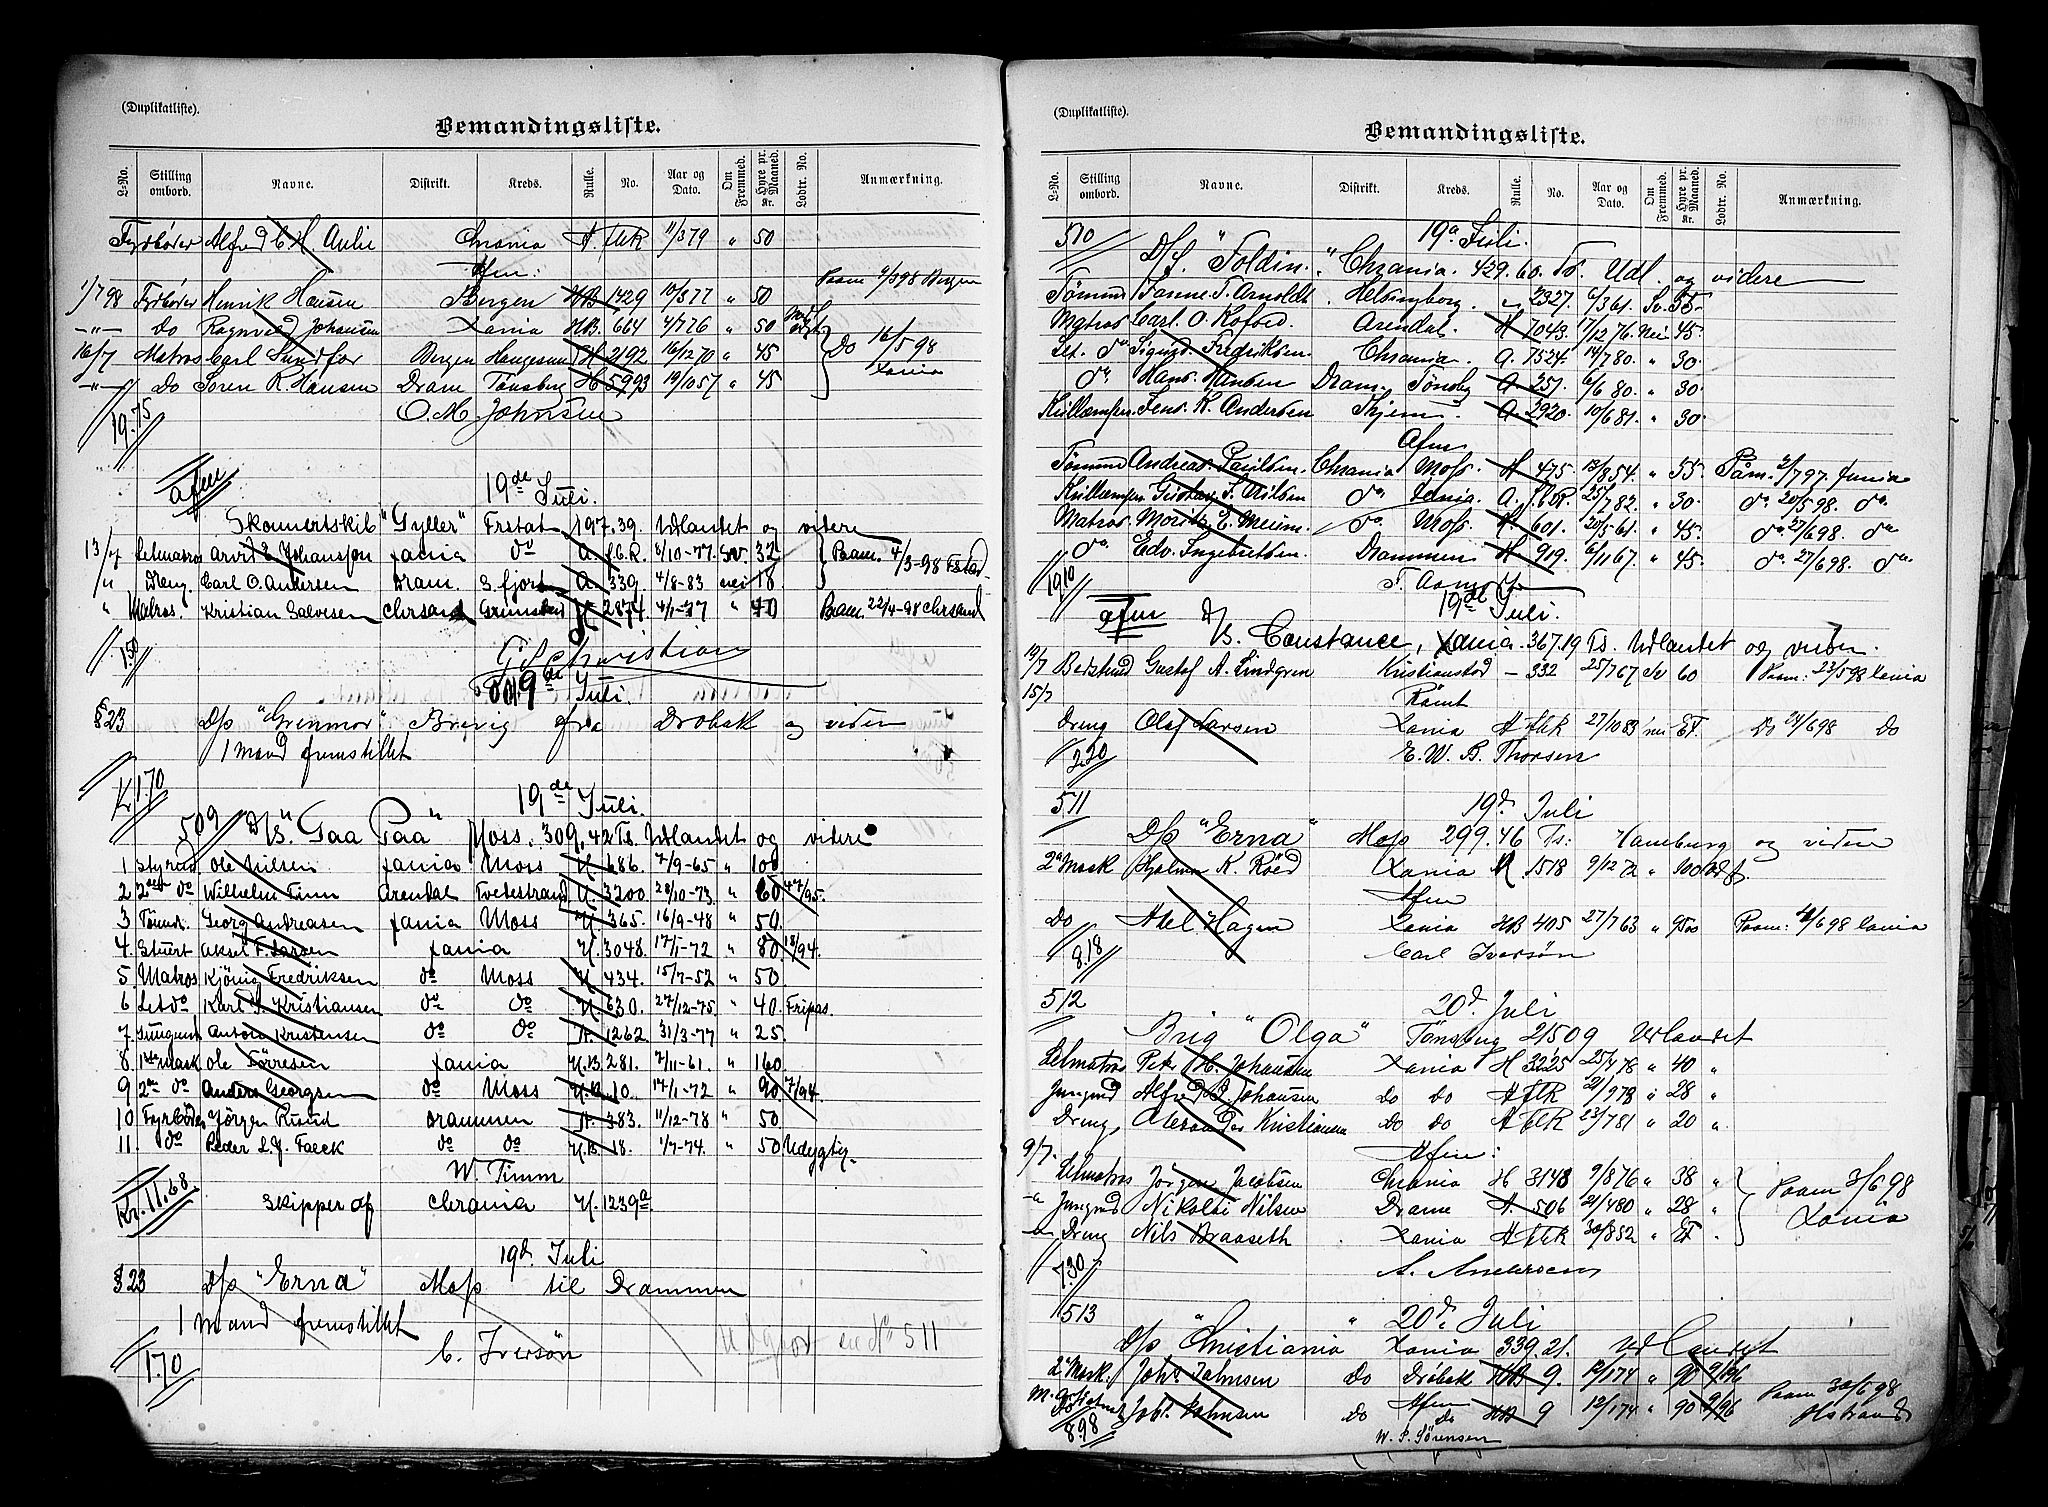 (Duplikatliste).
Bemandingsliste.
L-No. Stilling ombord. Navne. Distrikt. Kreds. Rulle. No. Aar og Dato. Om Fremmed. Hyre pr. Maaned. Kr. Lodtr. No. Anmærkning.
Fyrbøder Alfred C. H. Aulie Chrania A. flk 11/379 " 50
Afm:
1/7 98 Fyrbøder Henrik Hansen Bergen HB 1429 10/377 " 50 Paam 4/398 Bergen
-"- Do Ragnvald Johansen Xania HB. 664 4/776 " 50
16/7 Matros Carl Sundfor Bergen Haugesund H 2192 16/1270 " 45 Do 16/5 98
-"- Do Soren R. Hansen Dram Tønsberg H 5993 19/1057 " 45 Xania
19.75 O. M. Johnsen
afm 19de Juli.
Skonnertskib "Gyller" Frstat 197.39. Udlandet og videre
13/7 Letmatros Arvid E Johansson Xania do A. f.C.R. 8/10-77. Sv. 32
" Dreng. Carl O. Andersen Dram. S. fjord A. 339. 4/8-83 nei 18. Paam. 4/3-98 Fstad
" Matros. Kristian Salvesen Chrsand Grimstad H. 2874. 4/1-77 " 40 Paam. 22/4-98 Chrsand
1.50 G. S. Christian
19de Juli.
§23 D/s "Grenmar" Brevig fra Drøbak og viden
1 mand fremstillet
Kr 1.70
19de Juli.
509 D/S. "Gaa Paa" Moss. 309.42 Ts. Udlandet og videre
1 Styrmd Ole Nilsen Xania Moss H. 686. 7/9-65 " 100
2 2den do Wilhelm Timm Arendal Tvedestrand H. 3200. 28/10-73. " 60 47/95.
3 Tømm. Georg Andreasen Xania Moss H. 365. 16/9-48 " 50.
4. Stuert Aksel F. Larsen Xania H. 3048. 17/1-72 " 80 18/94.
5. Matros Kjönig Fredriksen do Moss H. 434. 15/7-52 " 50
6 Let do Karl J. Kristiansen do do H. 630. 27/12-75. " 40. Fripas.
7 Jungmd Anton Kristensen do do A. 1262. 31/3-77 " 25.
8. 1ste Mask Ole Tørresen Xania H.B. 281. 7/11-61. " 160.
9 2den do Anders Georgsen do Moss H.B. 10. 14/1-72 " 90 7/94.
10 Fyrbøder Jörgen Ruud Drammen A. 383. 11/12-78 " 50
11. do Peder L. J. Faeck do do H.B. 18. 1/7-74. " 50 Udygtig.
Kr. 11.68 W. Timm
Skipper af Chrania H. 1239a
19d. Juli
§23 D/s "Erna" Moss til Drammen
1 mand fremstillet
1.70 C. Iversön Udgaar en No 511
(Duplikatliste).
Bemandingsliste.
L-No. Stilling ombord. Navne. Distrikt. Kreds. Rulle. No. Aar og Dato. Om Fremmed. Hyre pr. Maaned. Kr. Lodtr. No. Anmærkning.
510 19d Juli.
D/S. "Foldin." Chrania. 429.60. Ts. Udl. og videre
Tømmd Janne. T. Arnoldt. Helsingborg. " 2327. 6/361. Sv. 55.
Matros Carl. O. Kofoed. Arendal. H 7043. 17/12 76. Nei 45.
Let. do Sigurd. Fredriksen. Chrania. A. 7524 14/780. " 30.
do. Hans. Hansen Dram. Tönsbg A 251. 6/6 80. " 30.
Jens. K. Andersen Tjøm. A 2920. 10/681. " 30.
Afm
Tømmd Andreas. Paulsen. Chrania Moss. H 475. 13/854. " 55. Paam. 2/797. Junia
Gustav. J. Nilsen do Xania. A. flk. 25/782. " 30. do 20/598. do.
Matros. Moritz E. Meum. do. Moss. H. 601. 20/561. " 45. do 27/698. do
do. Edv. Ingebretsen. Drammen H 919. 6/1167. " 45. do. 27/698. do.
19 10 T. Aamodt
afm 19de Juli.
D/S. Constance, Xania. 367.19 Ts. Udlandet og viden.
14/7 Bedstmd Gustaf A. Lindgren Kristianstad - 332 25/767 Sv 60 Paam: 23/598 Xania
15/7 Rømt
Dreng Olaf Larsen Xania A flk 27/1083 nei Et. Do 24/698 Do
2.20 E. W. B. Thorsen
511 19d. Juli
D/s "Erna" Moss 299.46 Ts: Hamburg og viden
2d Mask Hjalmar K. Röed Xania M 1518 9/1272 " 100
Afm
Do Axel Hagen Xania HB 405 27/763 " Paam: 4/698 Xania
8.18 Carl Iversön
512 20d. Juli
Brig "Olga" Tönsbug 21509 Udlandet
Letmatros Peter H. Johansen Xania H 3225 25/478 " 40 "
Jungmd Alfred B Johansen do do A flk 21/978 " 28 "
Dreng Alexander Kristiansen Do do A flk 23/781 " 20 "
9/7. Afm:
Letmatros Jörgen Jacobsen Chrania H 3148 9/876 " 38 "
-" Jungmd Nikolai Nilsen Dram A. 506 21/480 " 28 " Paam 3/698
-" Dreng Nils Braaseth Xania A flk 30/852 " Et " Xania
7.30 A. Andersen
513 20d. Juli
D/s "Christiania Xania 339.21. Udlandet
2d Mask. Johs Johnsen Do Dröbak HB 9. 12/174 " 90 9/96
Afm
Johs. Johnsen Do Do HB 9 12/174 " 90 9/96 Paam 30/698
8.98 W. S. Sörensen